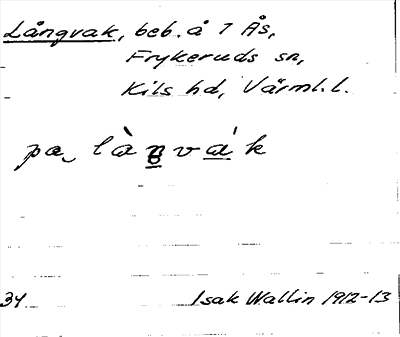 Långvak, beb. å 7 Ås,
Frykeruds sn,
Kils hd, Värml. l.
pa làŋvák
34
Isak Wallin 1912-13